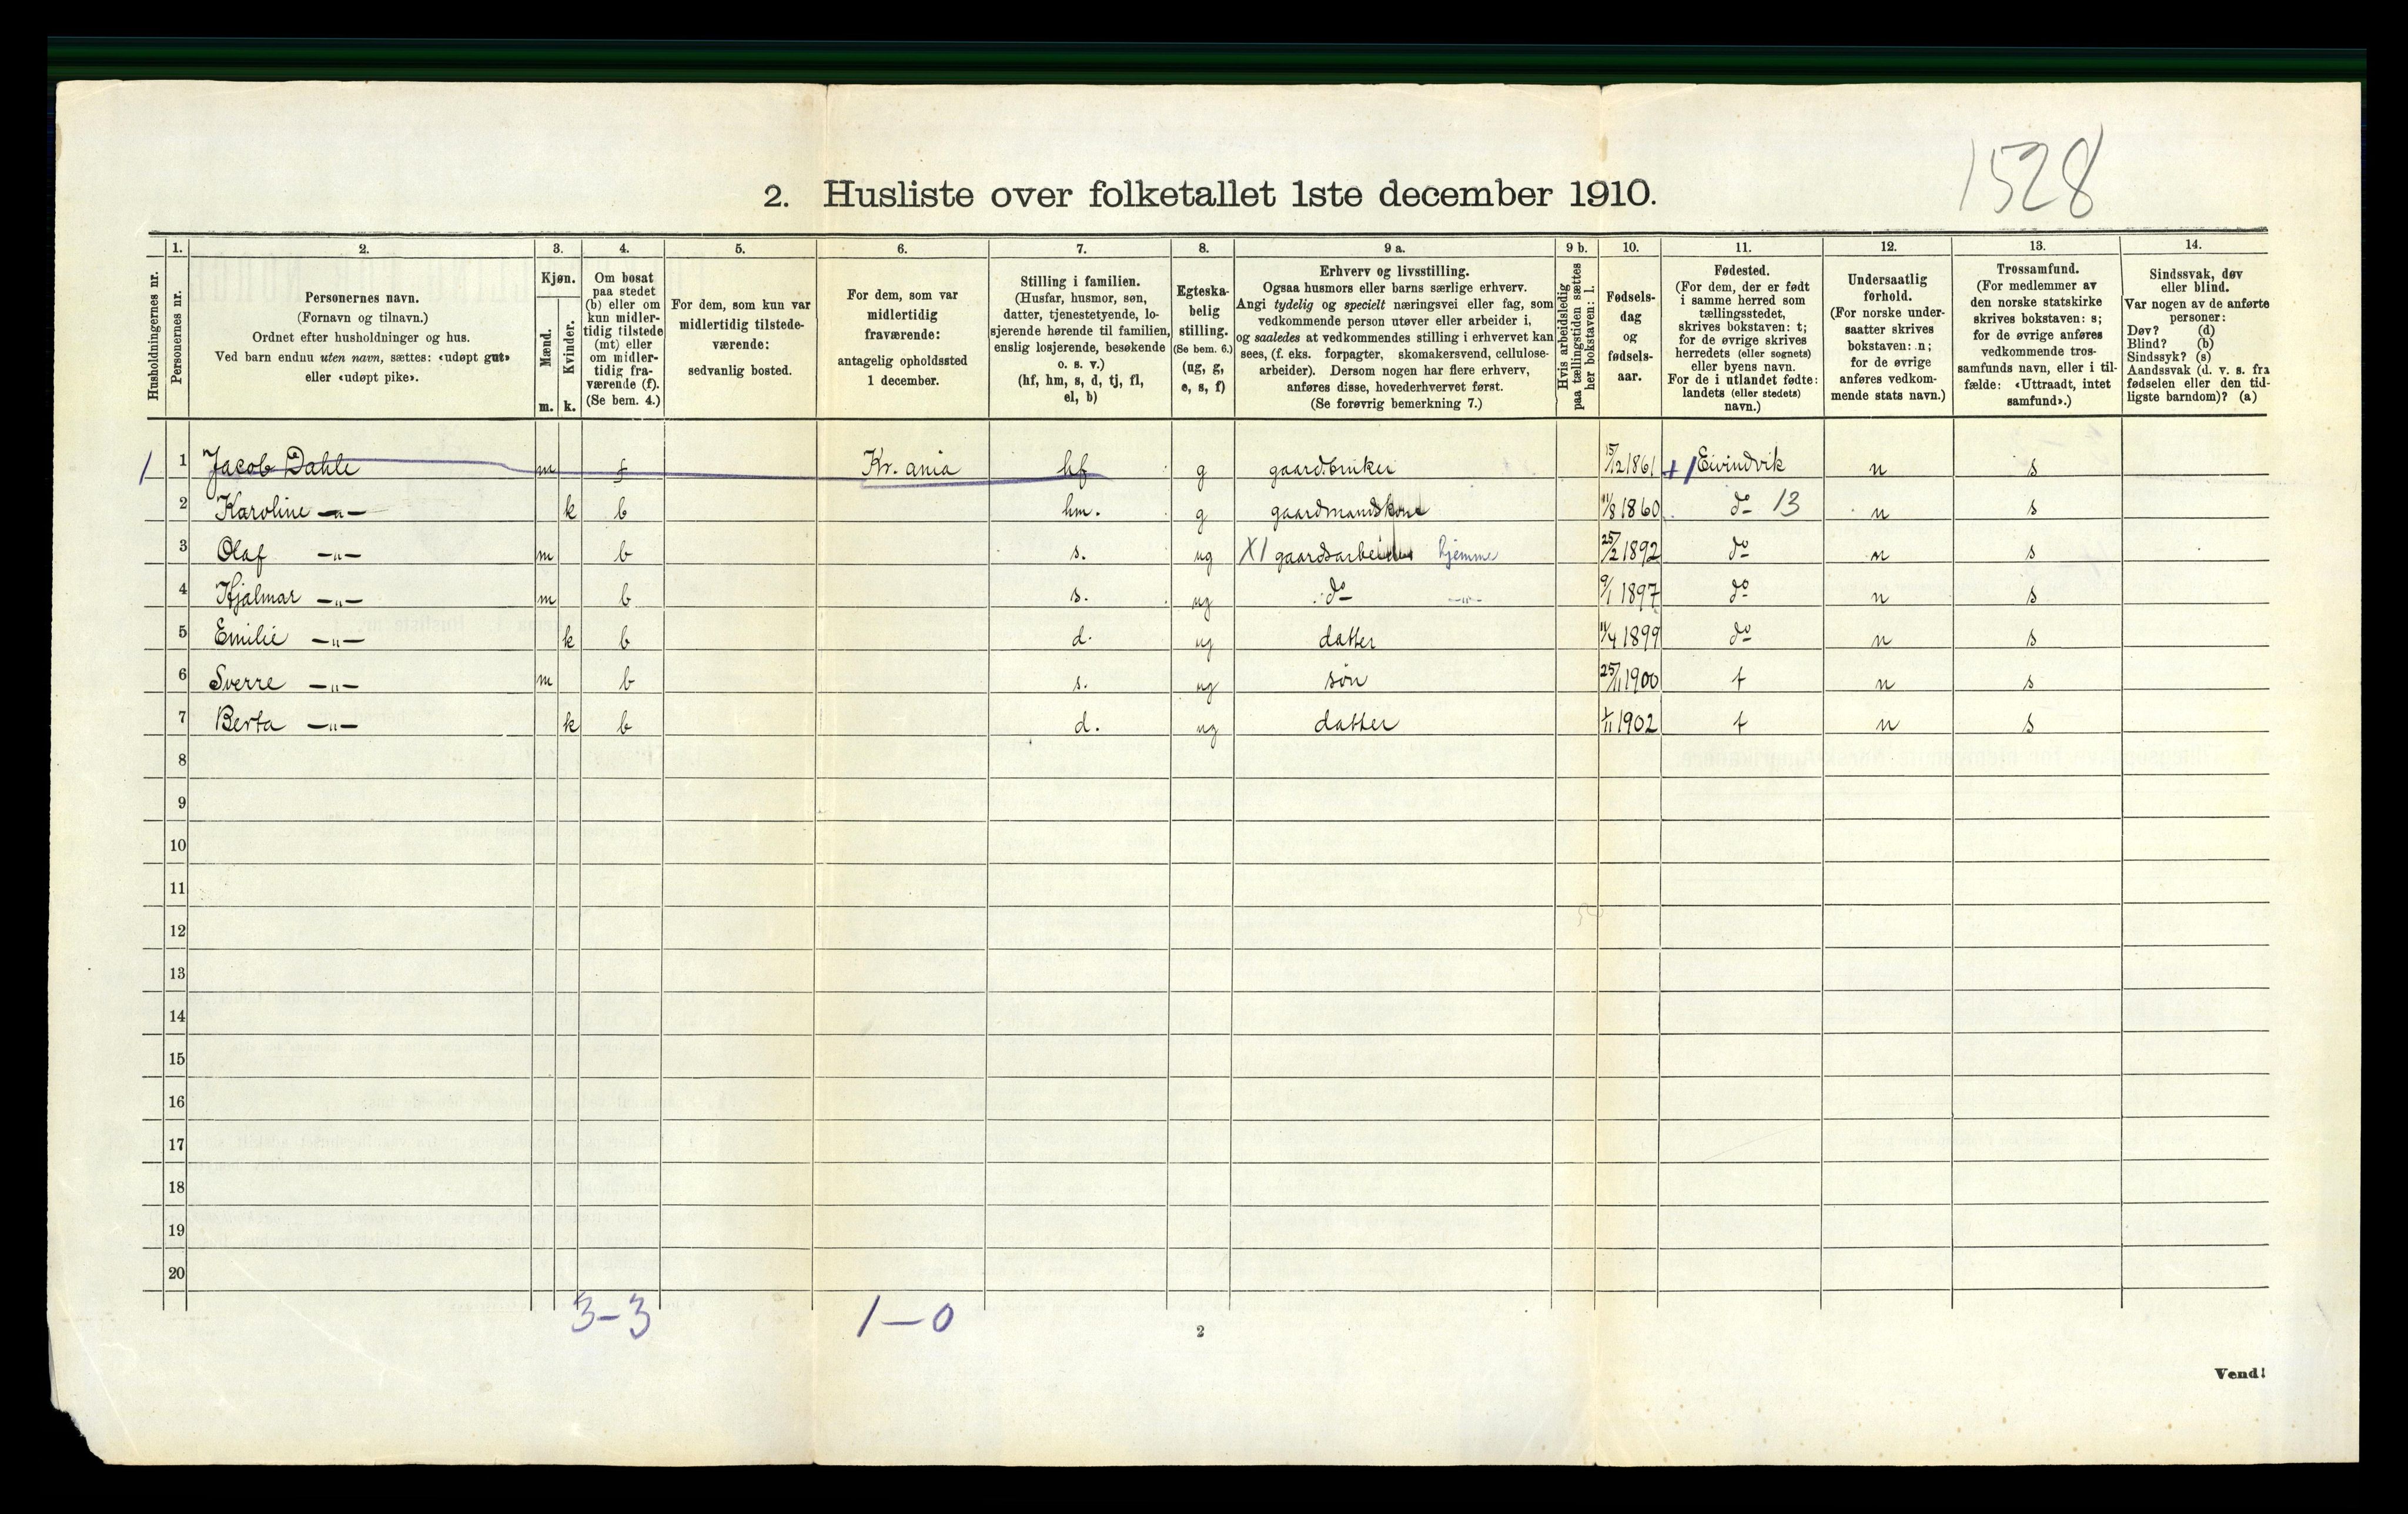 1528
2. Husliste over folketallet 1ste december 1910.
Husholdningernes nr.
1. Personernes nr.
2. Personernes navn.
(Fornavn og tilnavn.)
Ordnet efter husholdninger og hus.
Ved barn endnu uten navn, sættes: «udøpt gut»
eller «udøpt pike».
3. Kjøn.
Mænd. m.
Kvinder. k.
4. Om bosat
paa stedet
(b) eller om
kun midler-
tidig tilstede
(mt) eller
om midler-
tidig fra-
værende (f).
(Se bem. 4.)
5. For dem, som kun var
midlertidig tilstede-
værende:
sedvanlig bosted.
6. For dem, som var
midlertidig
fraværende:
antagelig opholdssted
1 december.
7. Stilling i familien.
(Husfar, husmor, søn,
datter, tjenestetyende, lo-
sjerende hørende til familien,
enslig losjerende, besøkende
o. s. v.)
(hf, hm, s, d, tj, fl,
el, b)
8. Egteska-
belig
stilling.
(Se bem. 6.)
(ug, g,
e, s, f)
9 a. Erhverv og livsstilling.
Ogsaa husmors eller barns særlige erhverv.
Angi tydelig og specielt næringsvei eller fag, som
vedkommende person utøver eller arbeider i,
og saaledes at vedkommendes stilling i erhvervet kan
sees, (f. eks. forpagter, skomakersvend, cellulose-
arbeider). Dersom nogen har flere erhverv,
anføres disse, hovederhvervet først.
(Se forøvrig bemerkning 7.)
9 b. Hvis arbeidsledig
paa tællingstiden sættes
her bokstaven: l.
10. Fødsels-
dag
og
fødsels-
aar.
11. Fødested.
(For dem, der er født
i samme herred som
tællingsstedet,
skrives bokstaven: t;
for de øvrige skrives
herredets (eller sognets)
eller byens navn.
For de i utlandet fødte:
landets (eller stedets)
navn.)
12. Undersaatlig
forhold.
(For norske under-
saatter skrives
bokstaven: n;
for de øvrige
anføres vedkom-
mende stats navn.)
13. Trossamfund.
(For medlemmer av
den norske statskirke
skrives bokstaven: s;
for de øvrige anføres
vedkommende tros-
samfunds navn, eller i til-
fælde: «Uttraadt, intet
samfund».)
14. Sindssvak, døv
eller blind.
Var nogen av de anførte
personer:
Døv? (d)
Blind? (b)
Sindssyk? (s)
Aandssvak (d. v. s. fra
fødselen eller den tid-
ligste barndom)? (a)
1 1 Jacob Dahle m f Kr.ania hf g gaardbruker 15/12 1861 +1 Eivindvik n s
2 Karoline —"— k b hm. g gaardmandskone 11/8 1860 do 13 n s
3 Olaf —"— m b s. ug X1 gaardsarbeider hjemme 25/2 1892 do n s
4 Hjalmar —"— m b s. ug do —"— 9/1 1897 do n s
5 Emilie —"— k b d. ug datter 11/4 1899 do n s
6 Sverre —"— m b s. ug søn 25/11 1900 t n s
7 Berta —"— k b d. ug datter 1/11 1902 t n s
8
9
10
11
12
13
14
15
16
17
18
19
20
3–3 1–0
2
Vend!